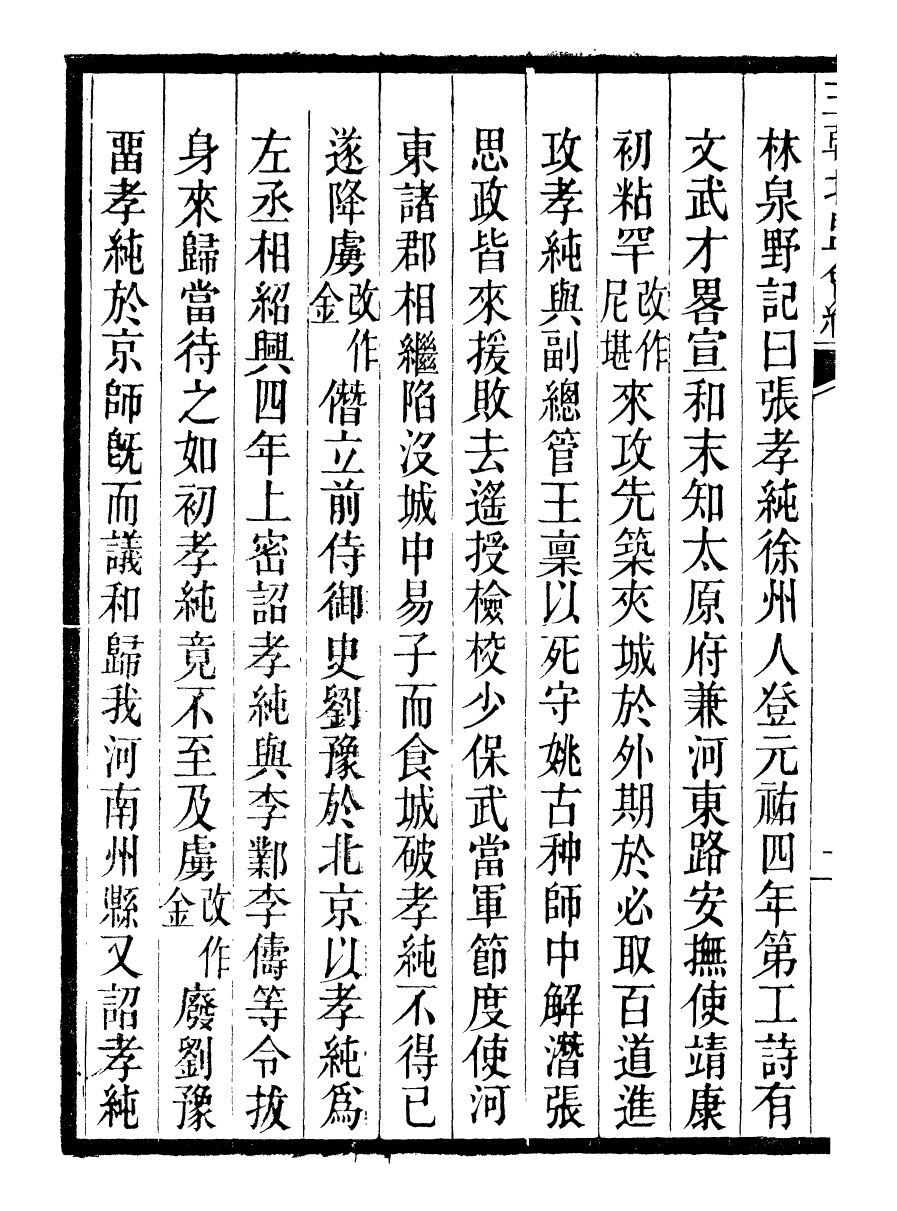 林泉野記曰張孝純徐州人登元祐四年第工詩有
文武才畧宣和末知太原府兼河東路安撫使靖康
初粘罕改作尼堪來攻先築夾城於外期於必取百道進
攻孝純與副總管王稟以死守姚古种師中解潛張
思政皆來援敗去遙授檢校少保武當軍節度使河
東諸郡相繼陷沒城中易子而食城破孝純不得已
遂降虜改作金僭立前侍御史劉豫於北京以孝純爲
左丞相紹興四年上密詔孝純與李鄴李儔等令拔
身來歸當待之如初孝純竟不至及虜改作金廢劉豫
畱孝純於京師旣而議和歸我河南州縣又詔孝純